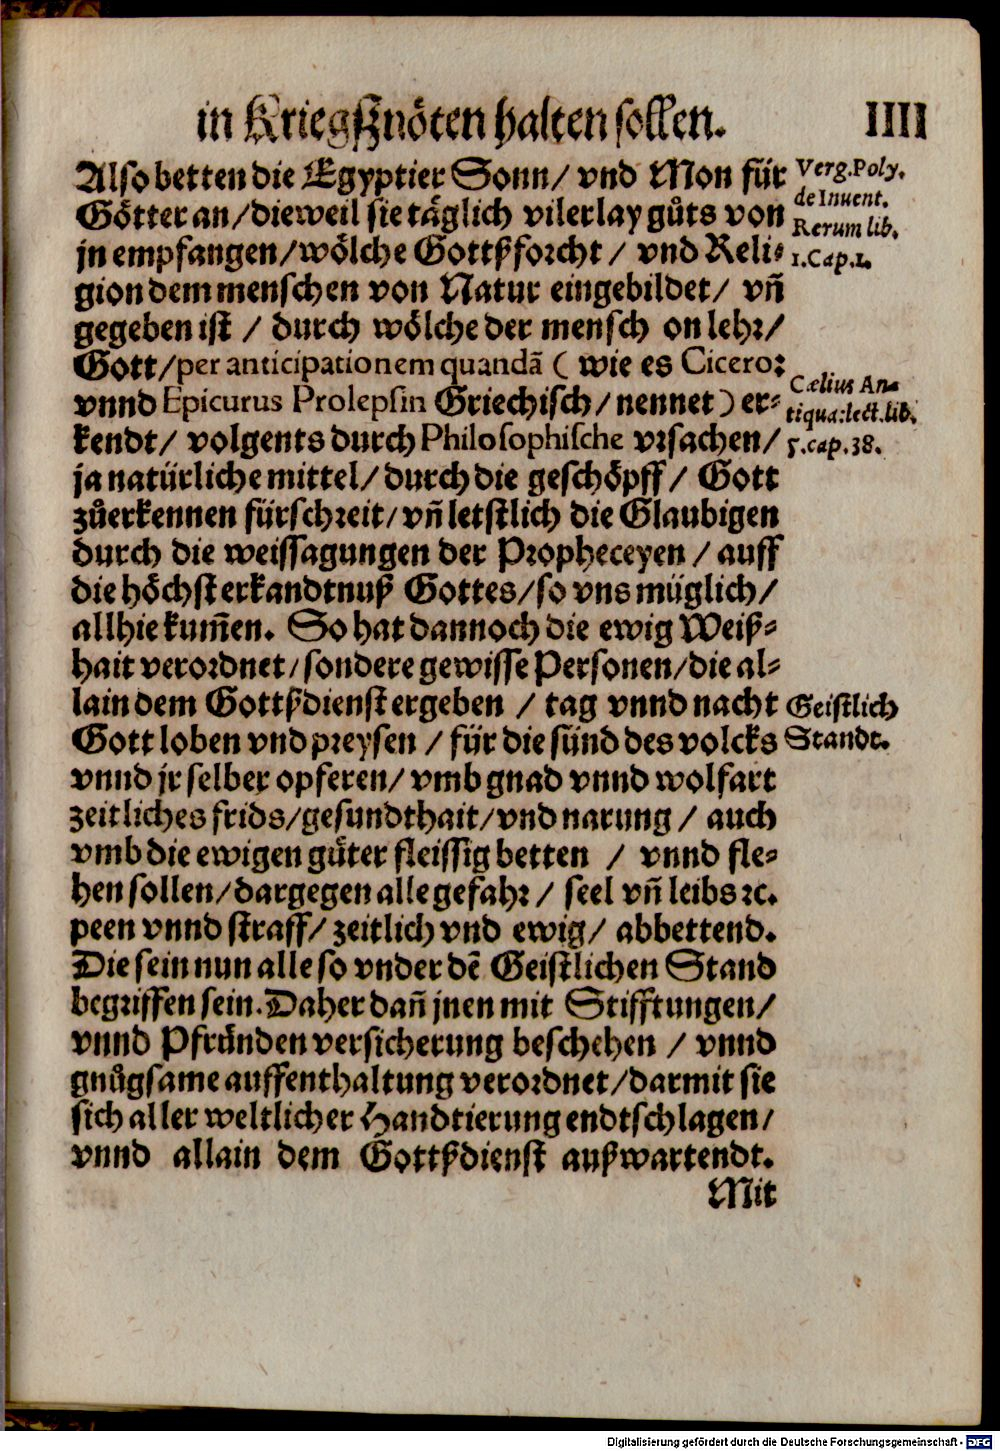 in Kriegßnöten halten sollen.
IIII
Also betten die Egyptier Sonn/ vnd Mon für
Götter an/dieweil sie täglich vilerlay gůts von
jn empfangen/wölche Gottßforcht / vnd Reli-
gion dem menschen von Natur eingebildet/ vñ
gegeben ist / durch wölche der mensch on lehr/
Gott/per anticipationem quandã ( wie es Cicero:
vnnd Epicurus Prolepsin Griechisch/nennet) er-
kendt/ volgents durch Philosophische vrsachen/
ja natürliche mittel/durch die geschöpff/ Gott
zůerkennen fürschreit/vñ letstlich die Glaubigen
durch die weissagungen der Propheceyen / auff
die höchst erkandtnuß Gottes/so vns müglich/
allhie kum̃en. So hat dannoch die ewig Weiß-
hait verordnet/sondere gewisse Personen/die al-
lain dem Gottßdienst ergeben / tag vnnd nacht
Gott loben vnd preysen / für die sünd des volcks
vnnd jr selber opferen/ vmb gnad vnnd wolfart
zeitliches frids/gesundthait/vnd narung / auch
vmb die ewigen gůter fleissig betten / vnnd fle-
hen sollen/dargegen alle gefahr / seel vñ leibs ꝛc.
peen vnnd straff/ zeitlich vnd ewig/ abbettend.
Die sein nun alle so vnder dẽ Geistlichen Stand
begriffen sein. Daher dañ jnen mit Stifftungen/
vnnd Pfründen versicherung beschehen / vnnd
gnůgsame auffenthaltung verordnet/darmit sie
sich aller weltlicher Handtierung endtschlagen/
vnnd allain dem Gottßdienst außwartendt.
Mit
Verg.Poly.
de Inuent.
Rerum lib.
1.Cap.1.
Cælius An-
tiqua:lect.lib.
5.cap.38.
Geistlich
Standt.
Digitalisierung gefördert durch die Deutsche Forschungsgemeinschaft - DFG